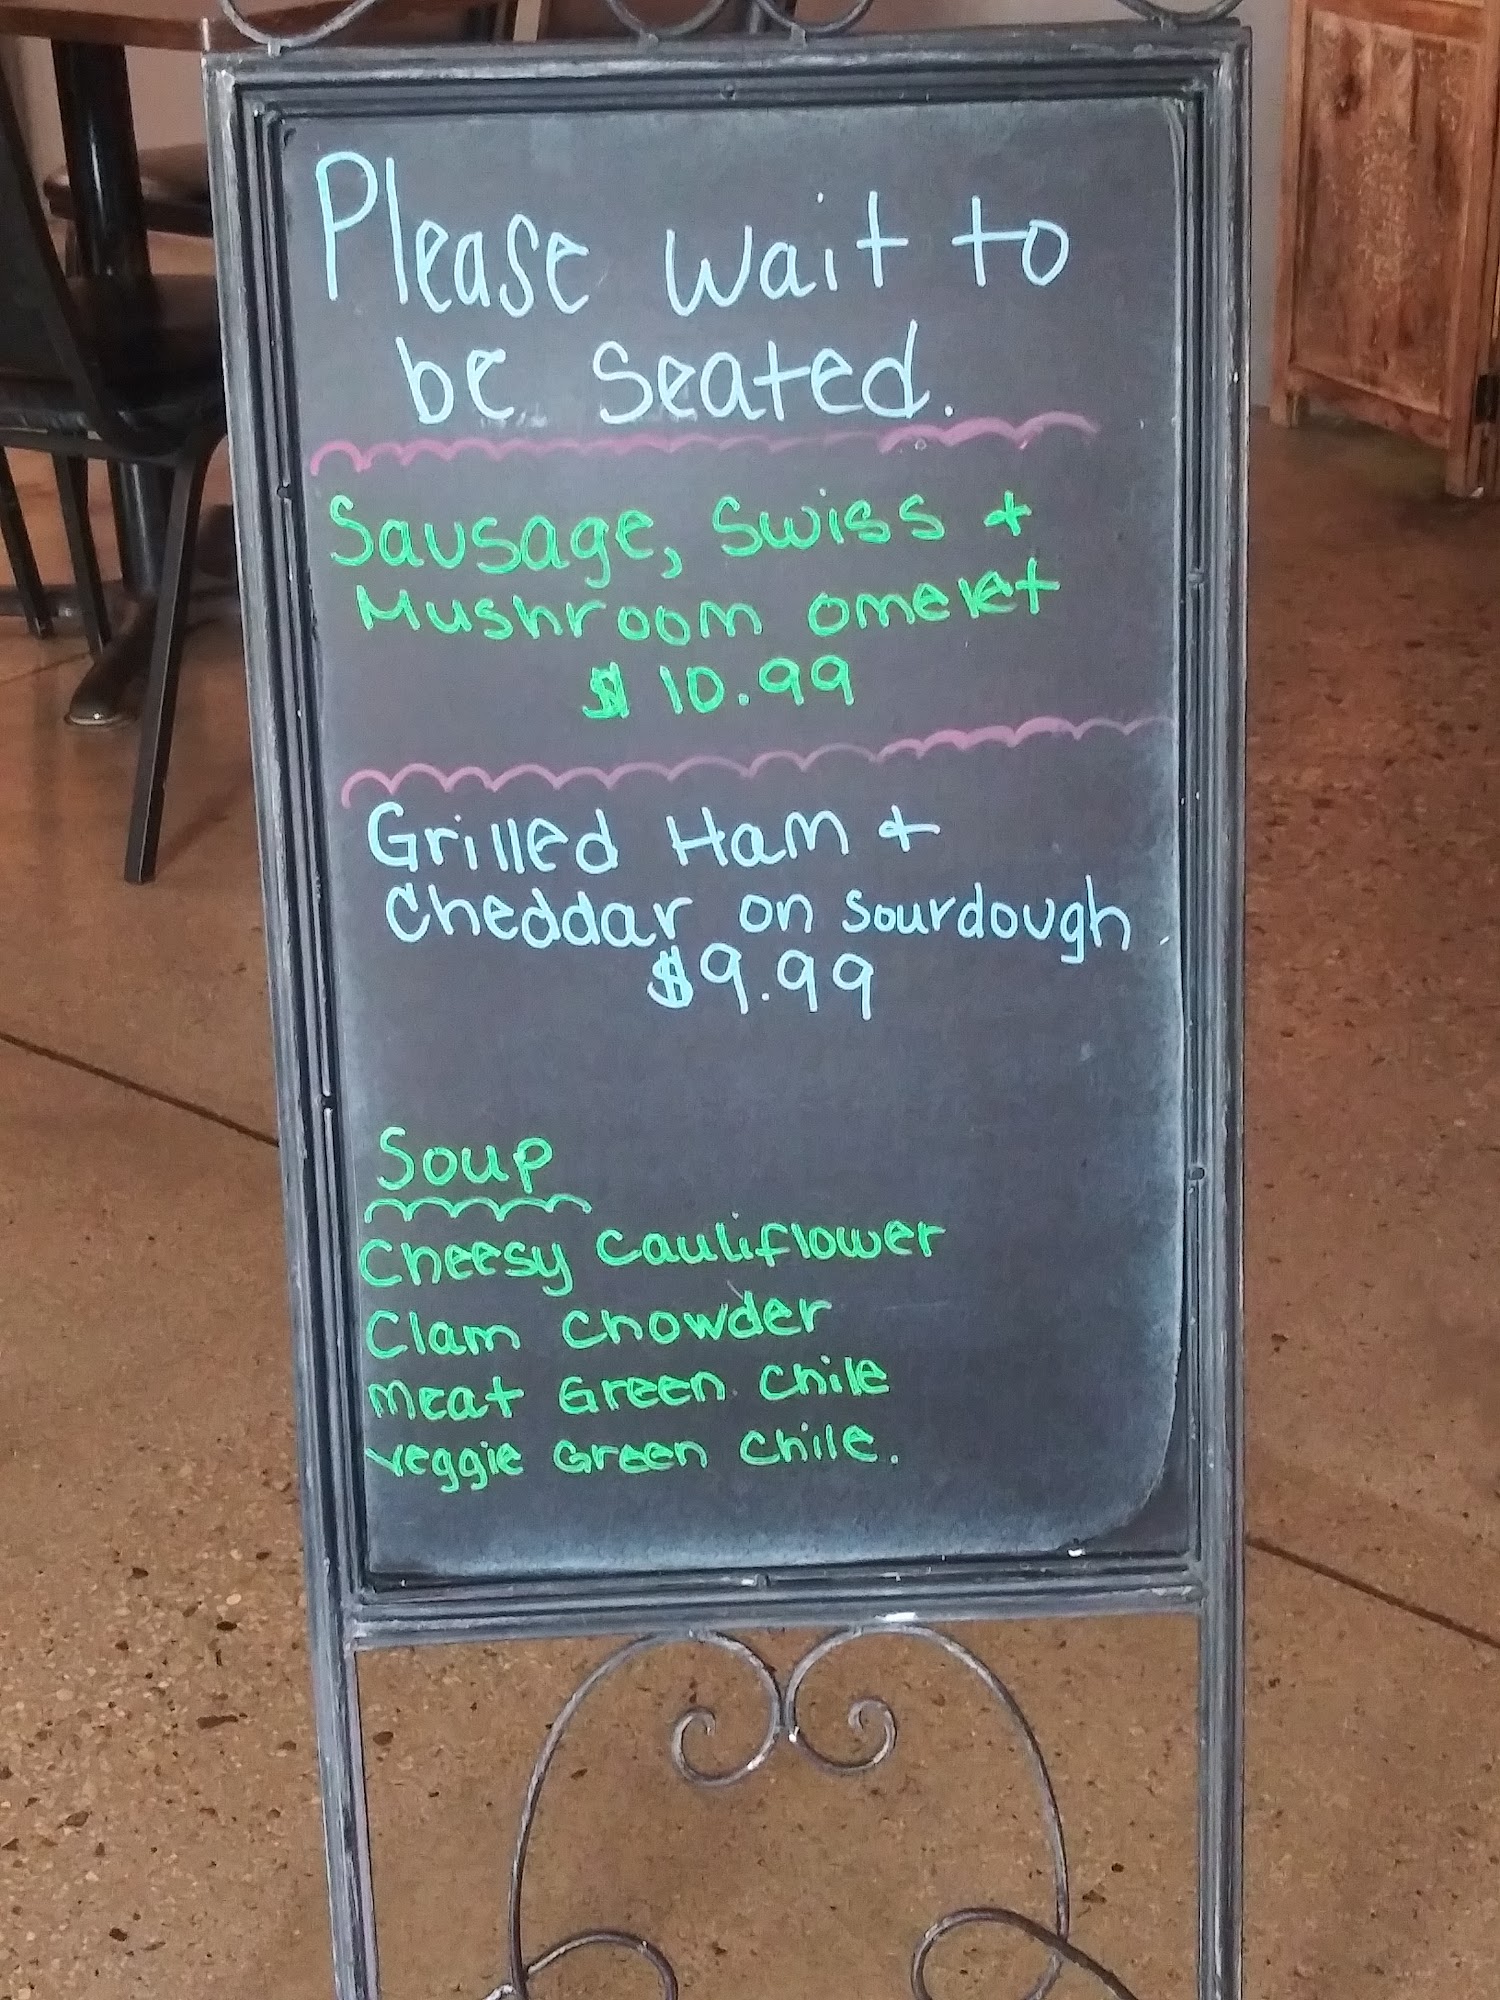 Please wait to
be seated.
Sausage, Swiss +
Mushroom omelet
$10.99
Grilled Ham +
Cheddar on Sourdough
$9.99
Soup
Cheesy Cauliflower
Clam Chowder
Meat Green Chile
Veggie Green Chile.